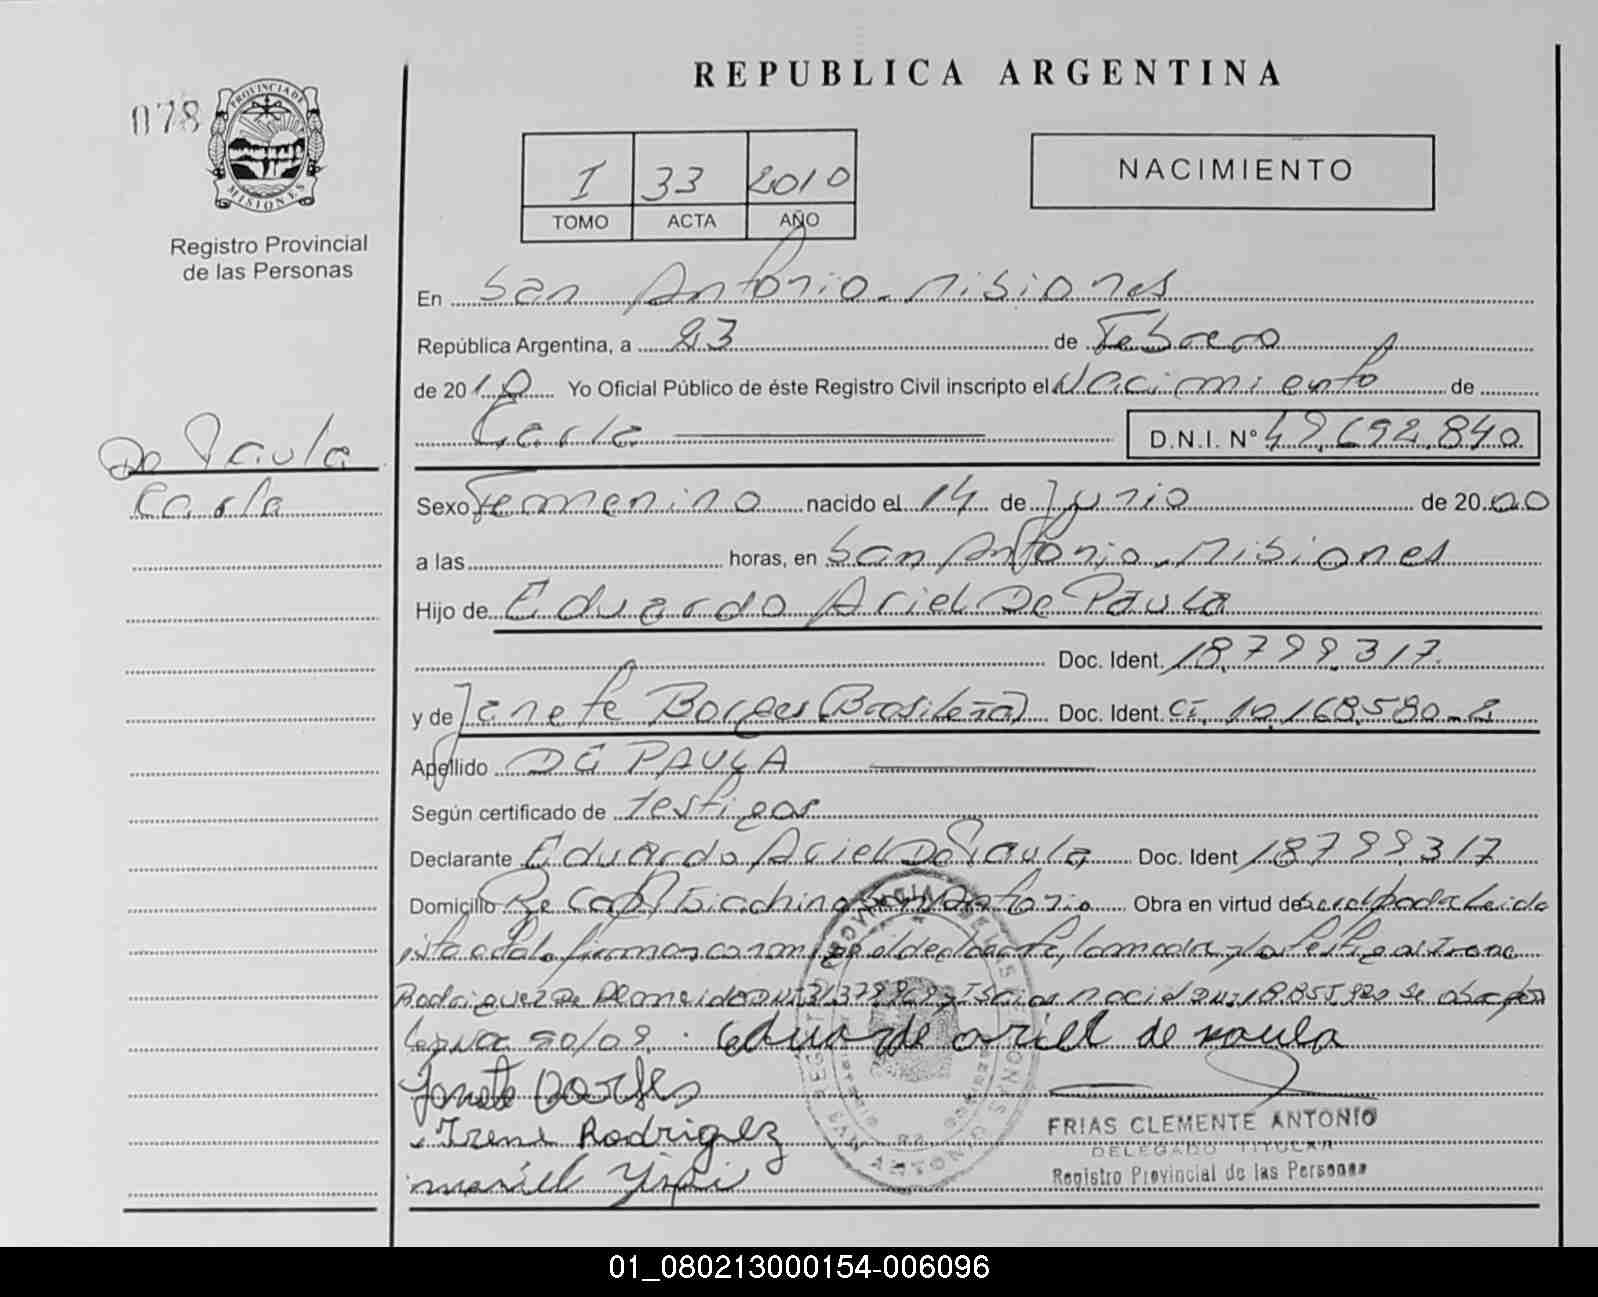 REPUBLICA ARGENTINA
078
PROVINCIA DE
MISIONES
Registro Provincial
de las Personas
I 33 2010
TOMO ACTA AÑO
NACIMIENTO
En San Antonio - Misiones
República Argentina, a 23 de Febrero
de 2010 Yo Oficial Público de éste Registro Civil inscripto el Nacimiento de
Carla D.N.I. Nº 49.692.840
De Paula
Carla
Sexo Femenino nacido el 14 de Junio de 2000
a las horas, en San Antonio - Misiones
Hijo de Eduardo Ariel De Paula
Doc. Ident. 18.799.317
y de Janete Borges (Brasileña) Doc. Ident. CI. 10.168.580-2
Apellido DE PAULA
Según certificado de testigos
Declarante Eduardo Ariel De Paula Doc. Ident 18799317
Domicilio San Antonio Obra en virtud de Leida
esta acta la firman conmigo el declarante, la madre y los testigos Irene
Rodriguez De Almeida y 18.855.920 se
90/09. eduardo ariel de paula
Janete Borges
Irene Rodriguez
FRIAS CLEMENTE ANTONIO
DELEGADO TITULAR
Registro Provincial de las Personas
01_080213000154-006096